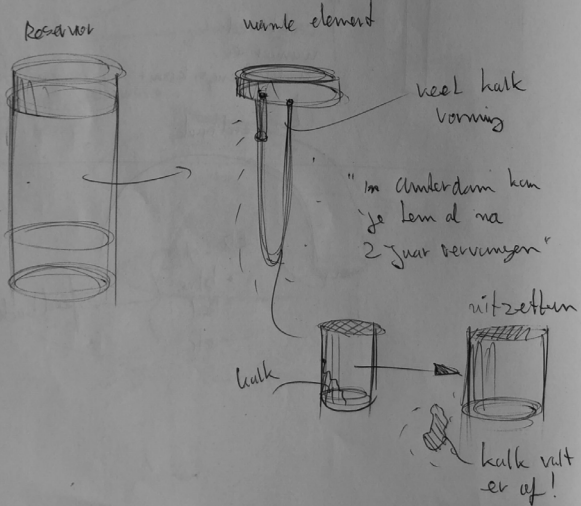 Reservoir
warmte element
veel kalk
vorming
"in Amsterdam kan
je hem al na
2 jaar vervangen"
uitzetten
kalk
kalk valt
er af!